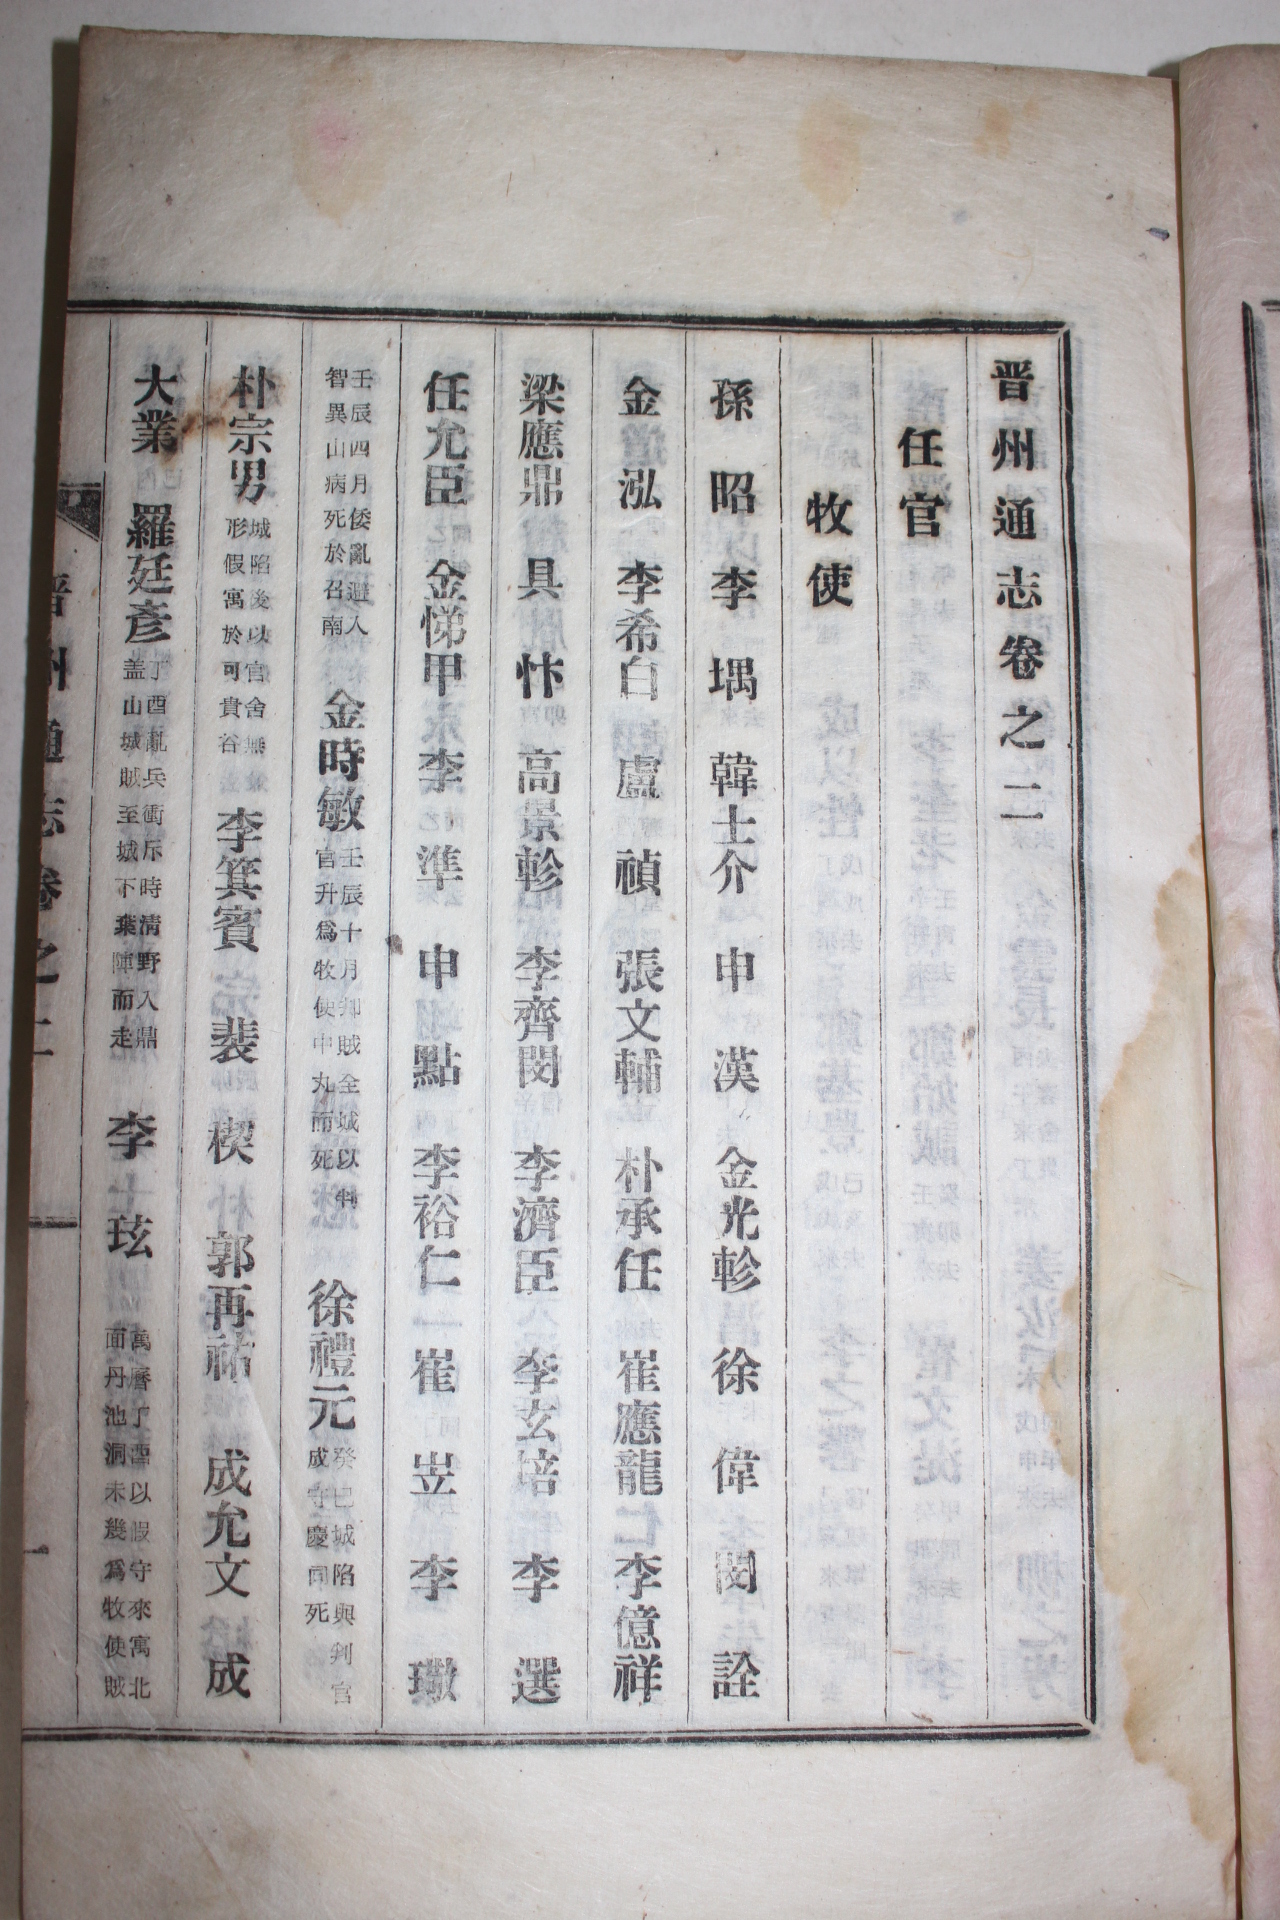 晋州通志卷之二
任官
牧使
孫昭 李堣 韓士介 申漢 金光軫 徐偉 閔詮
金泓 李希白 盧禎 張文輔 朴承任 崔應龍 李億祥
梁應鼎 具忭 高景軫 李齊閔 李濟臣 李玄培 李選
任允臣 金悌甲 李準 申點 李裕仁 崔岦 李璥
壬辰四月倭亂避入
智異山病死於召南
金時敏
壬辰十月却賊全城以判
官升爲牧使中丸而死
徐禮元
癸巳城陷與判官
成守慶同死
朴宗男
城陷後以官舍無
形假寓於可貴谷
李箕賓 裴楔 郭再祐 成允文 成
大業 羅廷彥
丁酉亂兵衝斥時清野入鼎
盖山城賊至城下葉陣而走
李玹
萬曆丁酉以假守來寓北
面丹池洞未幾爲牧使賊
晋州通志卷之二
一